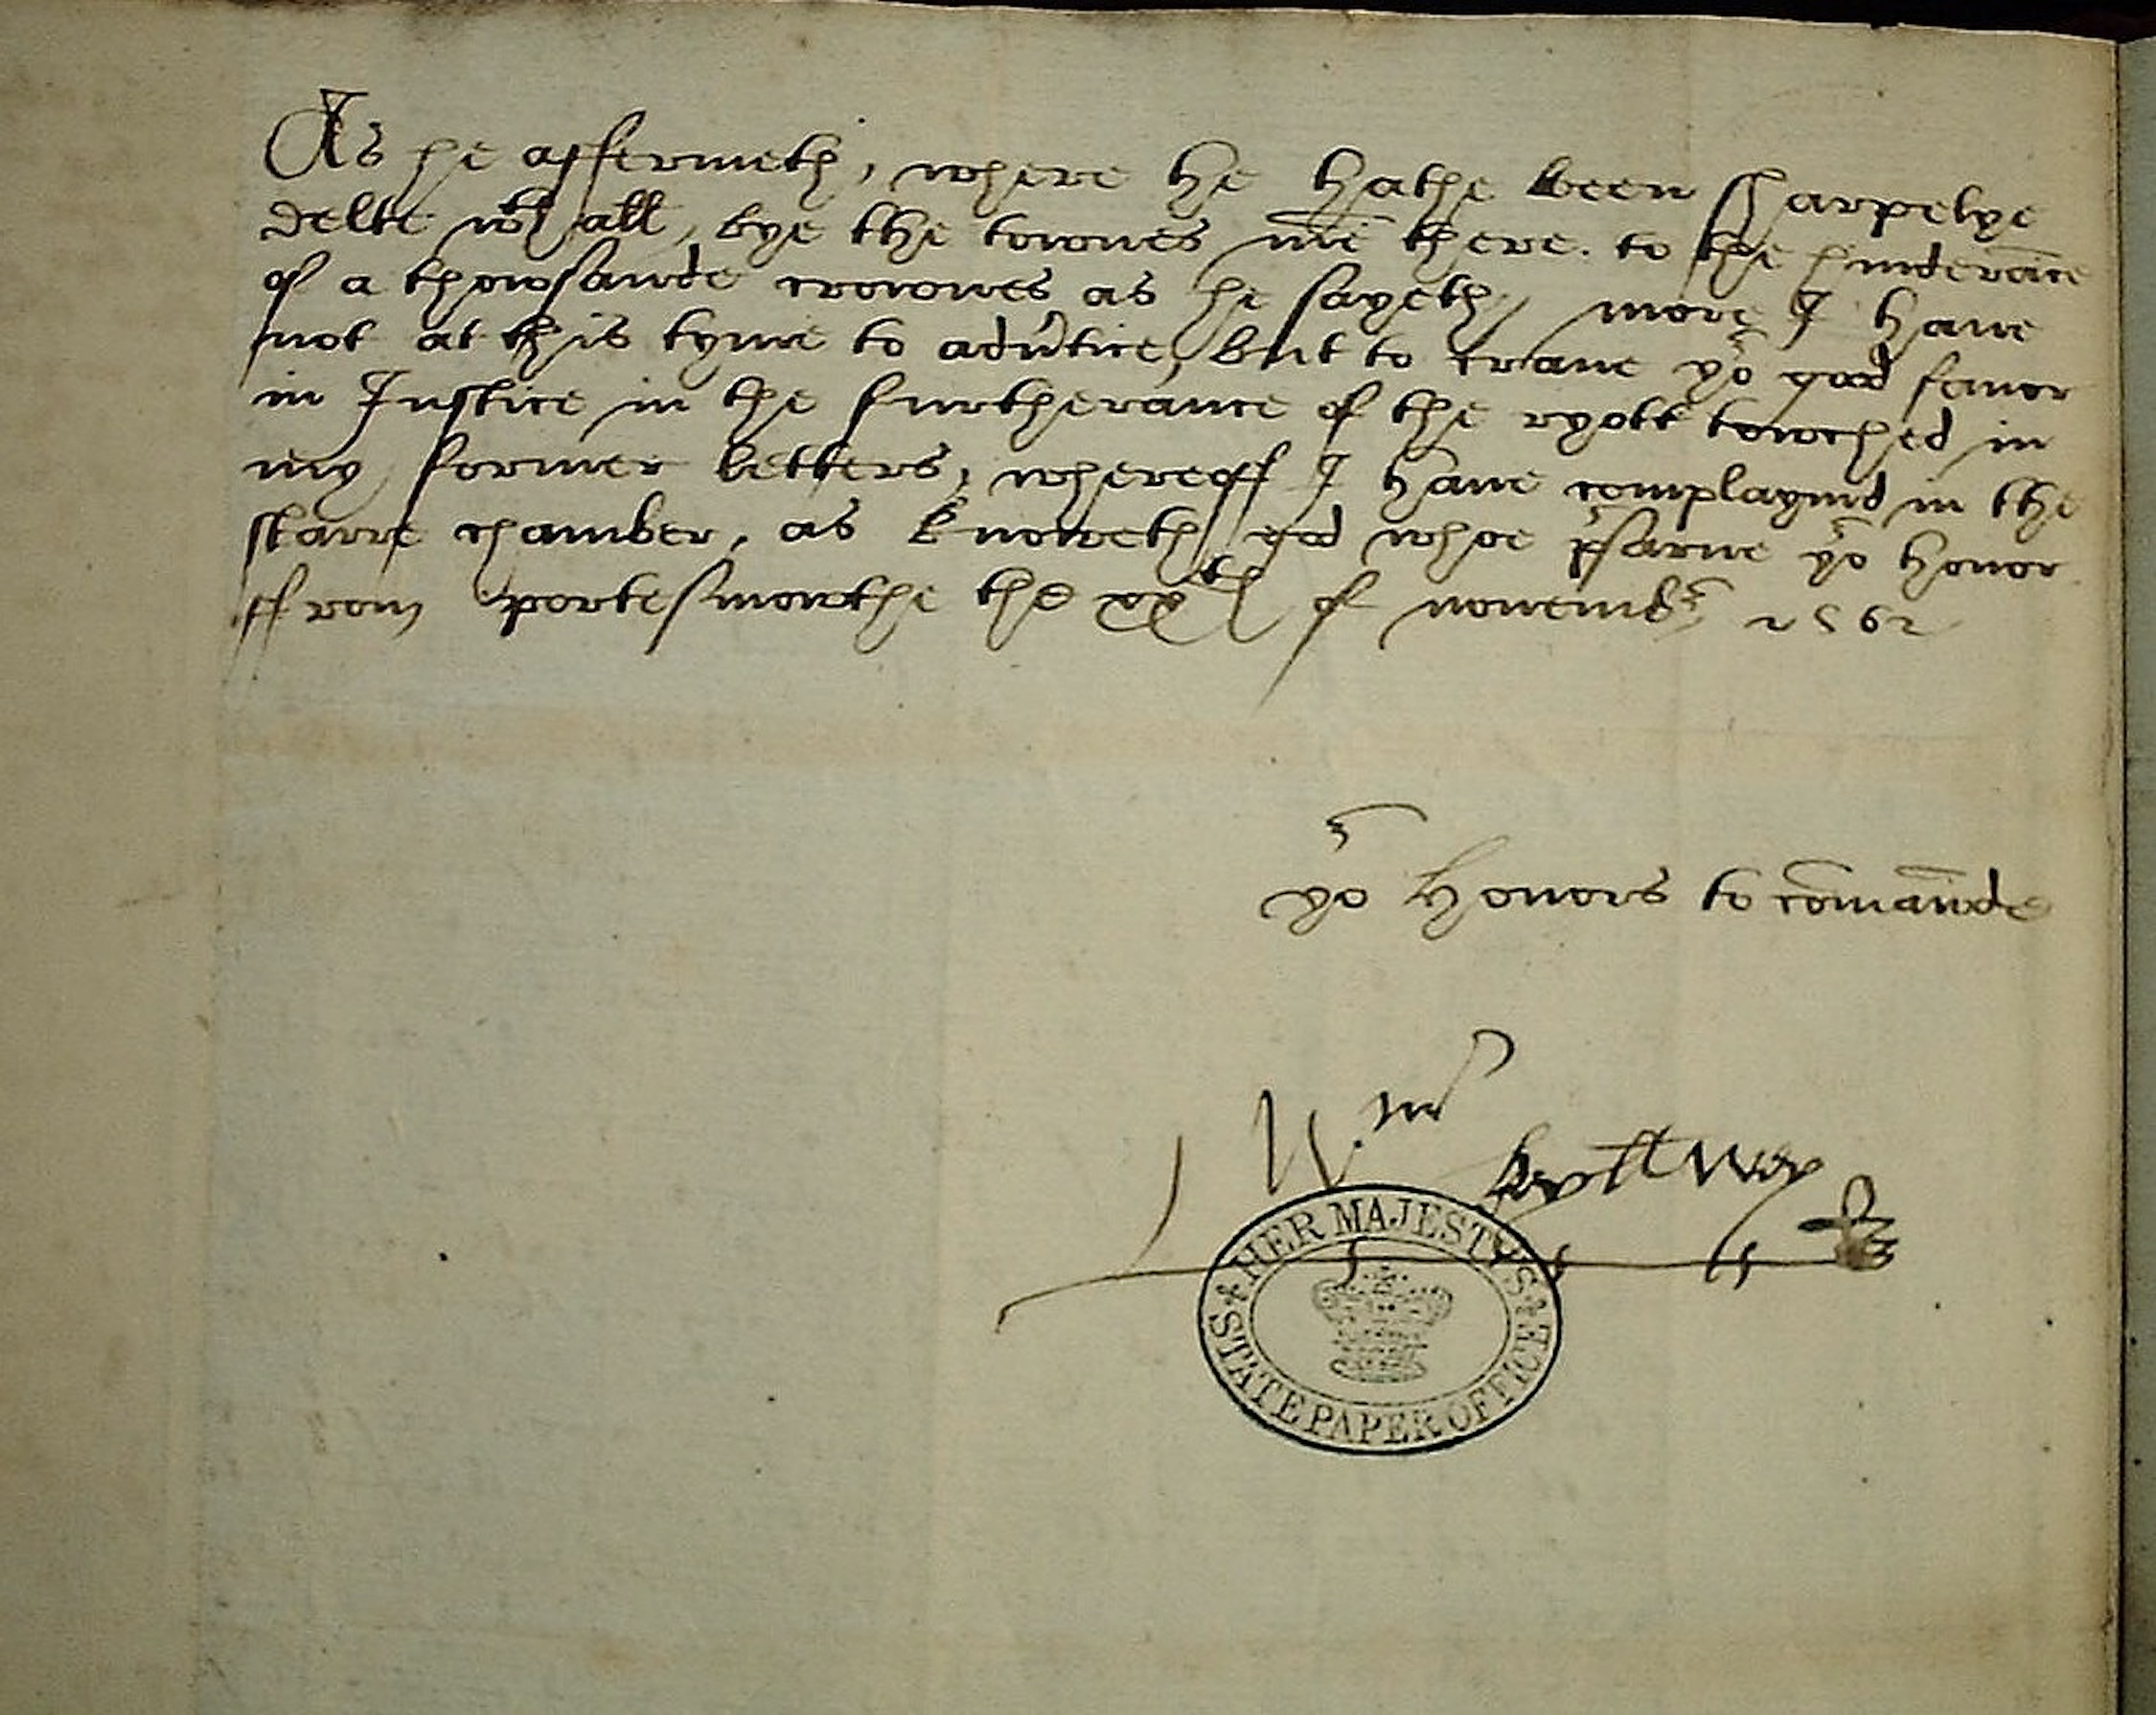 As he affermeth, where he hathe been sharpelye
delte wth all, bye the townes me͠ there. to the hinderāce
of a thowsande crownes as he sayeth, more I have
not at this tyme to adv̓tice, but to crave yor good favor
in Justice in the furtherance of the ryott towched in
my former letters, whereoff I have complaynid in the
starre chamber, as knoweth god whoe p̃sarve yor honor
ffrom portesmowthe the xxth of novembr 1562
yor honors to com̄aūde
Wm
HER MAJESTY'S
STATE PAPER OFFICE